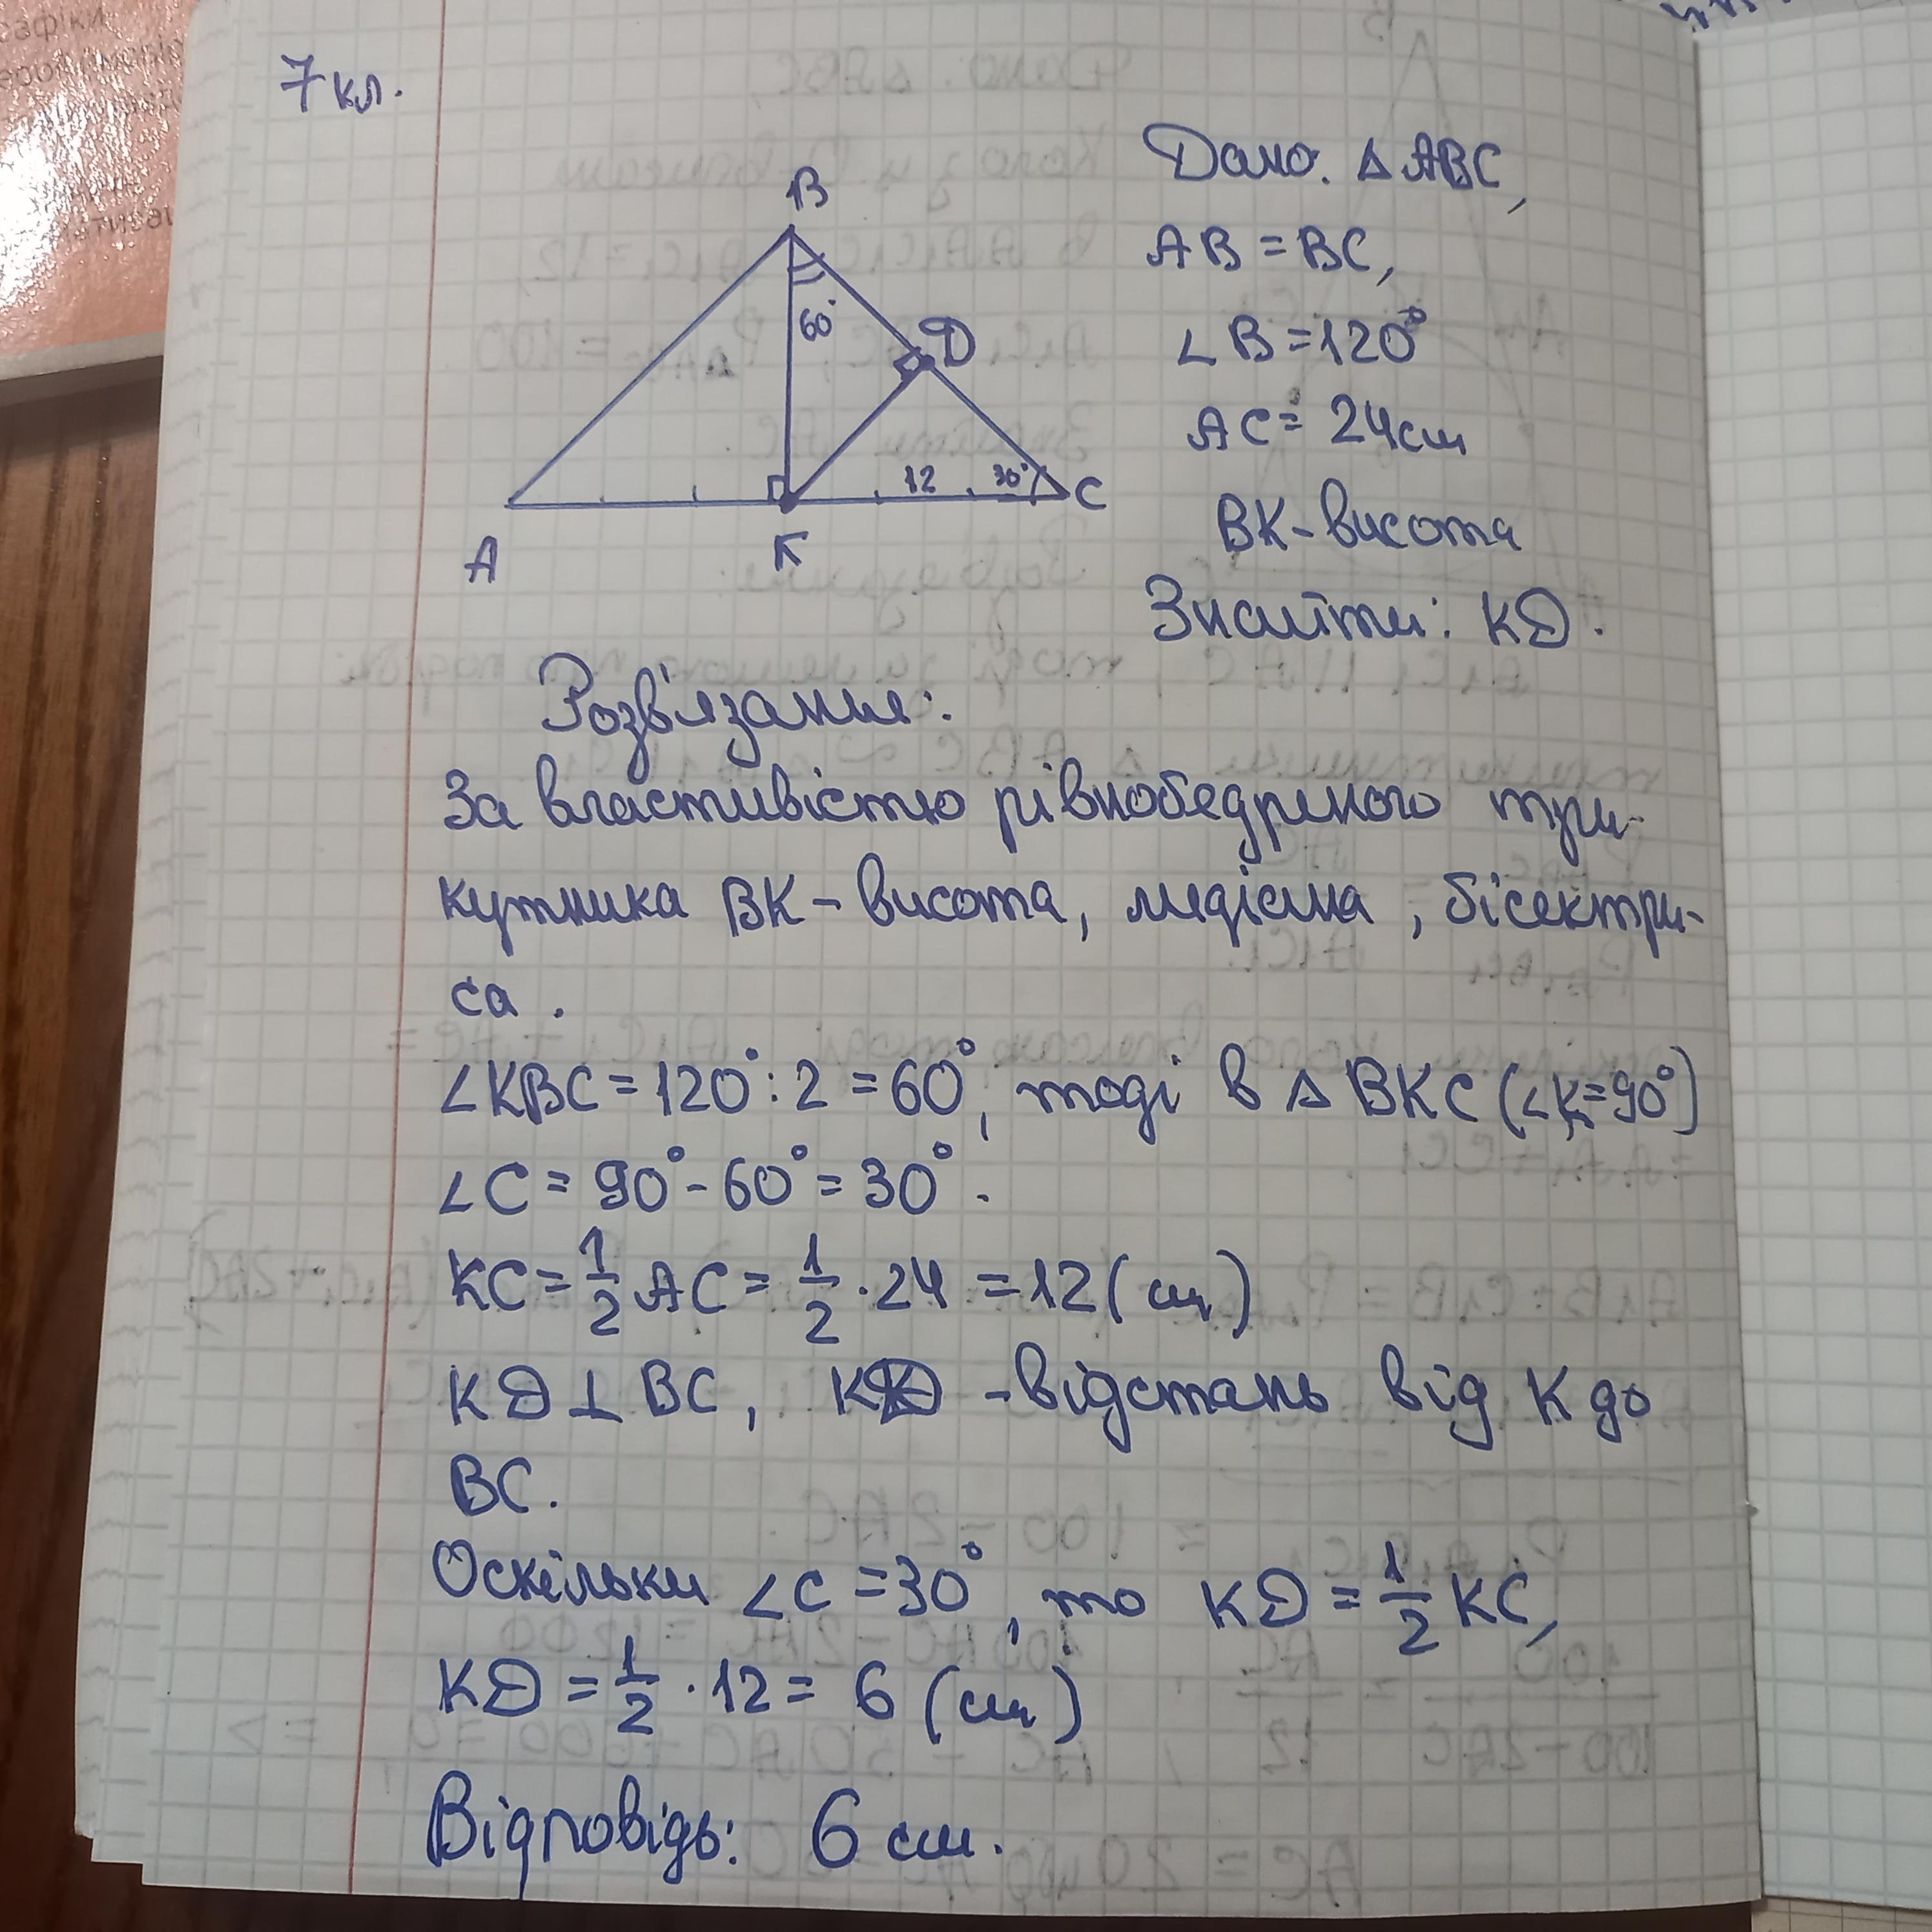 7 кл.
B
Дано: △ABC,
AB = BC,
60°
D
∠B = 120°
AC = 24см
12
30°
C
A
K
BK - висота
Знайти: KD.
Розв'язання:
За властивістю рівнобедреного три-
кутника BK - висота, медіана, бісектри-
са.
∠KBC = 120° : 2 = 60°, тоді в △BKC (∠K = 90°)
∠C = 90° - 60° = 30°.
KC = 1/2 AC = 1/2 · 24 = 12 (см)
KD ⊥ BC, KD - відстань від K до
BC.
Оскільки ∠C = 30°, то KD = 1/2 KC,
KD = 1/2 · 12 = 6 (см)
Відповідь: 6 см.